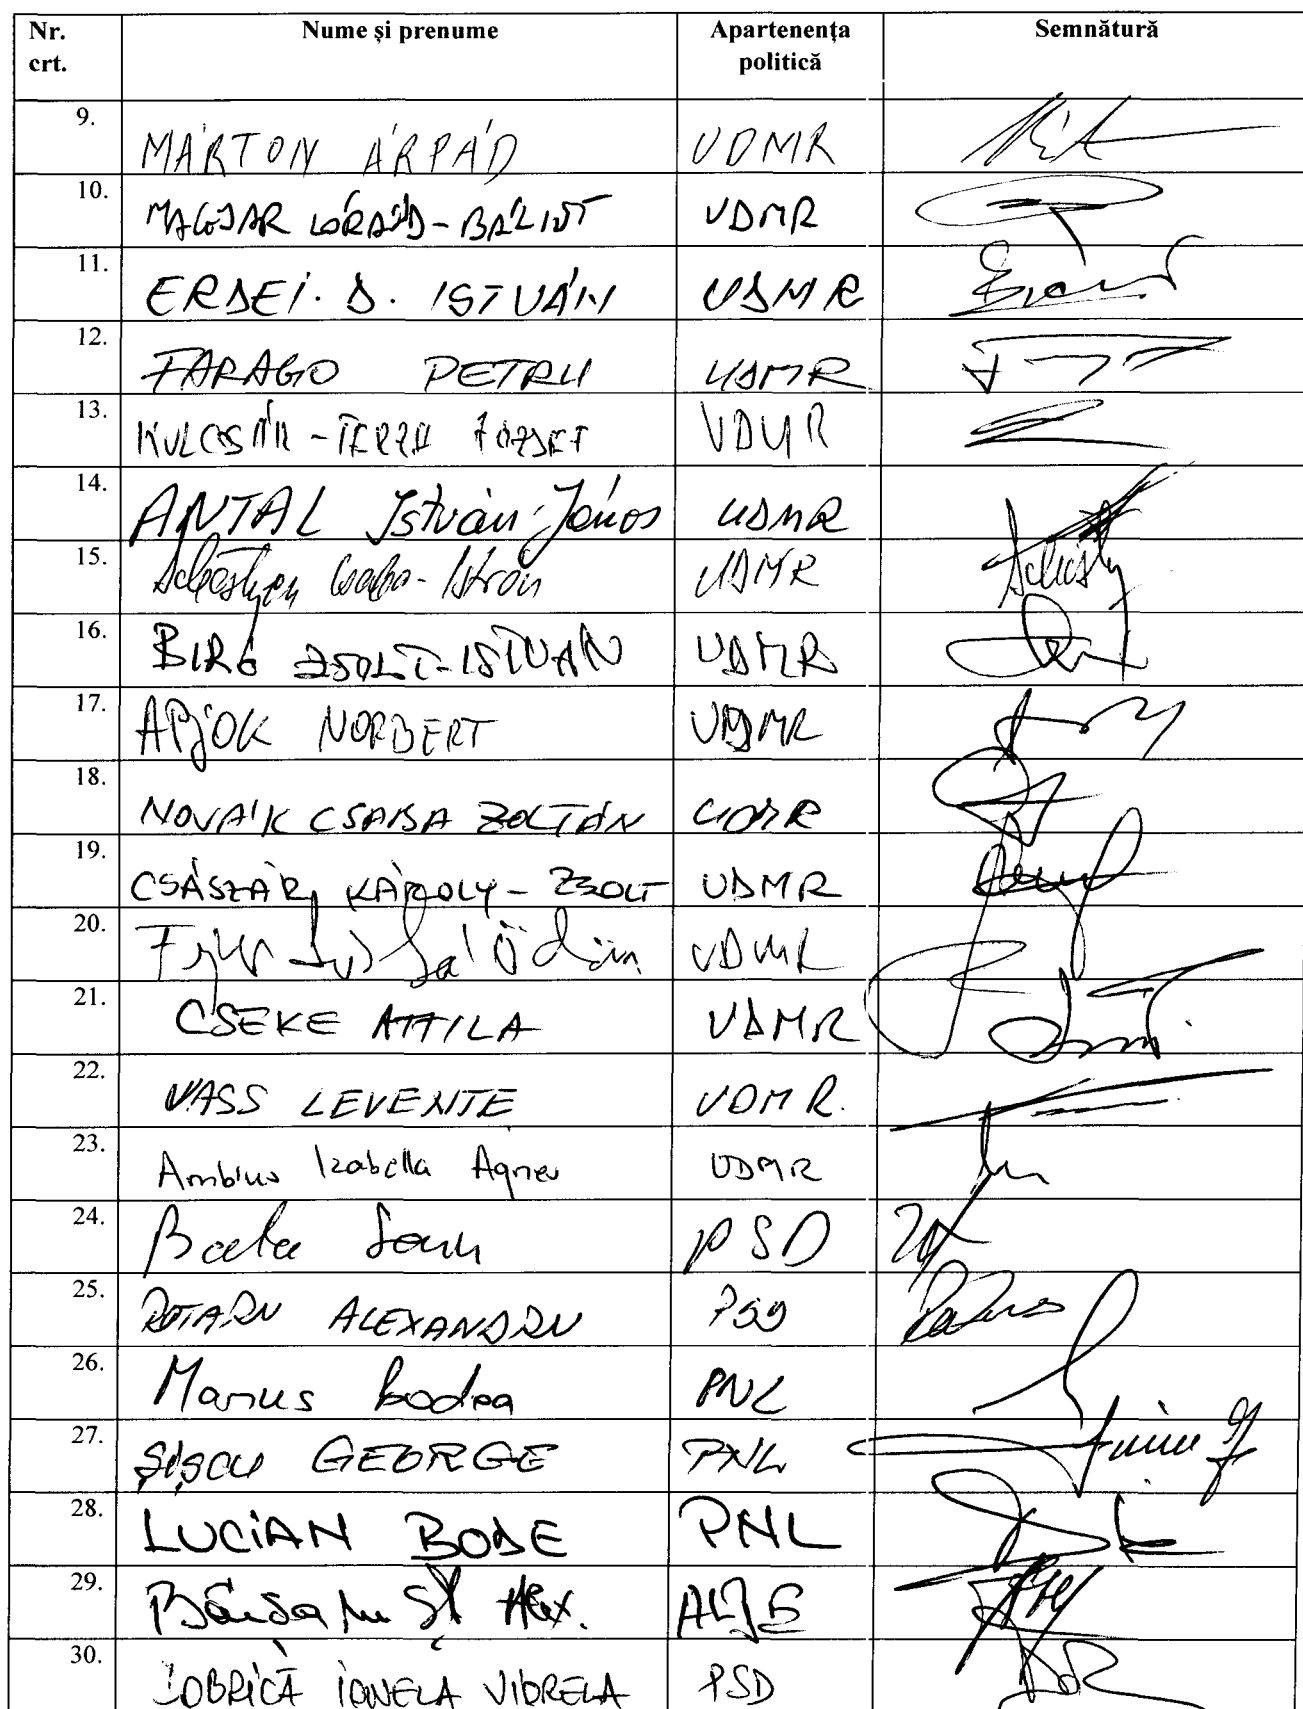 Nr. crt. Nume și prenume Apartenența politică Semnătură
9. MÁRTON ÁRPÁD UDMR
10. MAGYAR LÓRÁND-BÁLINT UDMR
11. ERDEI. D. ISTVÁN UDMR
12. FARAGO PETRU UDMR
13. KULCSÁR-TERZA JÓZSEF UDMR
14. ANTAL István-János UDMR
15. Sebestyen Csaba-István UDMR
16. BIRÓ ZSOLT-ISTVAN UDMR
17. APJOK NORBERT UDMR
18. NOVÁK CSABA ZOLTÁN UDMR
19. CSÁSZÁR KÁROLY-ZSOLT UDMR
20. UDMR
21. CSEKE ATTILA UDMR
22. VASS LEVENTE UDMR.
23. Ambrus Izabella Agnes UDMR
24. PSD
25. ROTARU ALEXANDRU PSD
26. Marius Bodea PNL
27. ȘIȘCU GEORGE PNL
28. LUCIAN BODE PNL
29. ALDE
30. DOBRICĂ IONELA VIORELA PSD